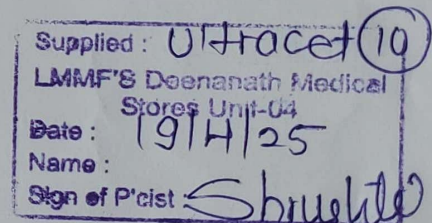 Supplied : Ultracet 10
LMMF'S Deenanath Medical
Stores Unit-04
Date : 19/4/25
Name :
Sign of P'cist :